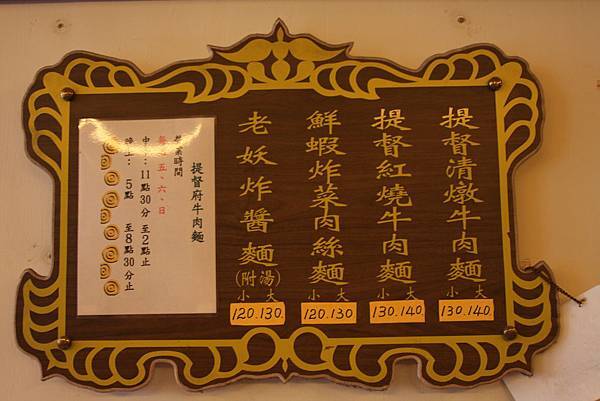 提督清燉牛肉麵
小 大
130.140.
提督紅燒牛肉麵
小 大
130.140.
鮮蝦炸菜肉絲麵
小 大
120.130
老妖炸醬麵(附湯)
小 大
120.130.
提督府牛肉麵
營業時間
每週五、六、日
11點30分 至2點止
晚上：5點 至8點30分止